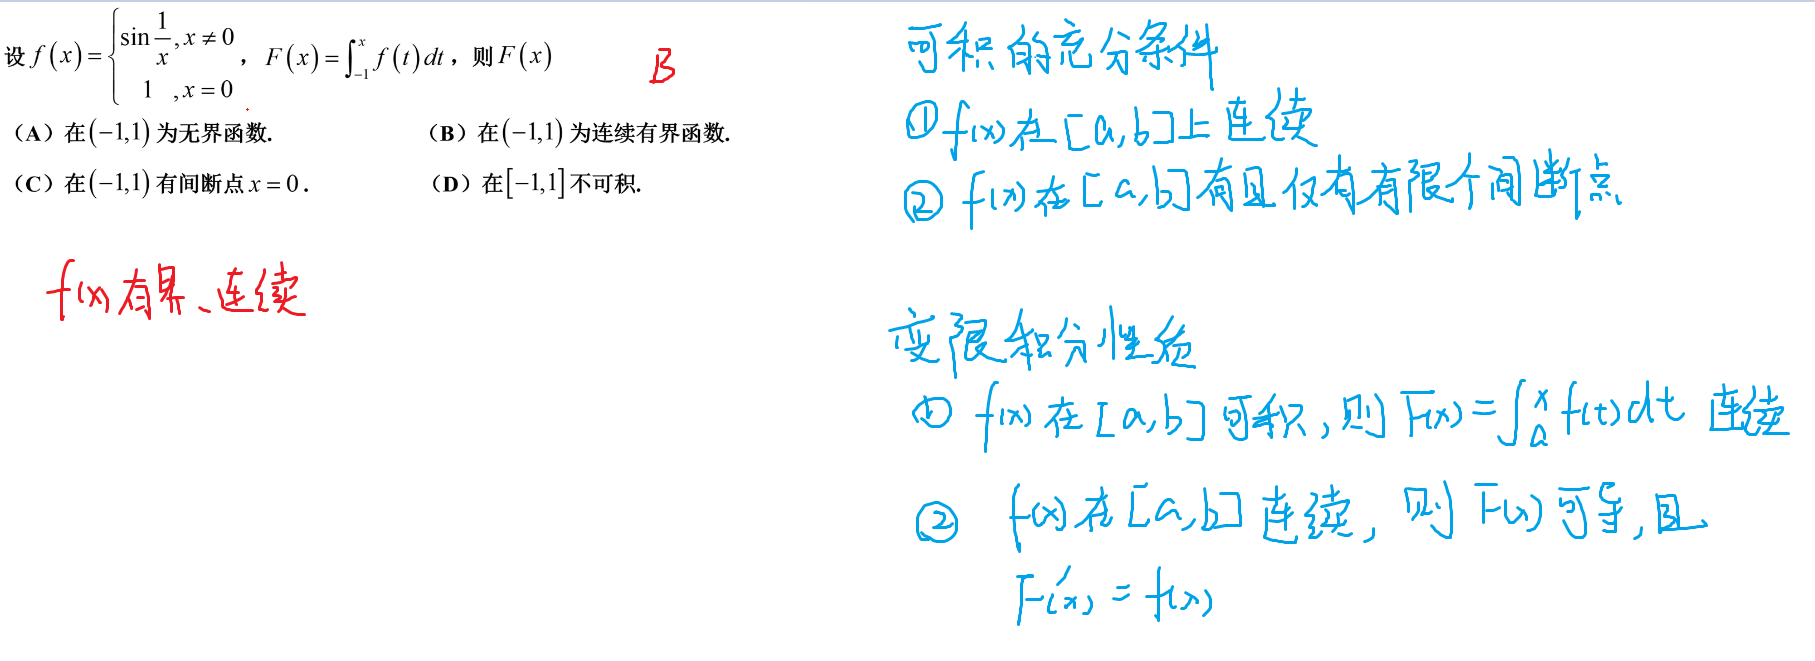 设 f(x) = { sin 1/x, x ≠ 0
1 , x = 0 , F(x) = ∫_{-1}^{x} f(t) dt , 则 F(x)
B
（A）在(−1,1)为无界函数.
（B）在(−1,1)为连续有界函数.
（C）在(−1,1)有间断点 x = 0 .
（D）在[−1,1]不可积.
f(x)有界、连续
可积的充分条件
① f(x)在[a,b]上连续
② f(x)在[a,b]有且仅有有限个间断点
变限积分性质
① f(x)在[a,b]可积，则 F(x) = ∫_a^x f(t)dt 连续
② f(x)在[a,b]连续，则F(x)可导，且
F'(x) = f(x)